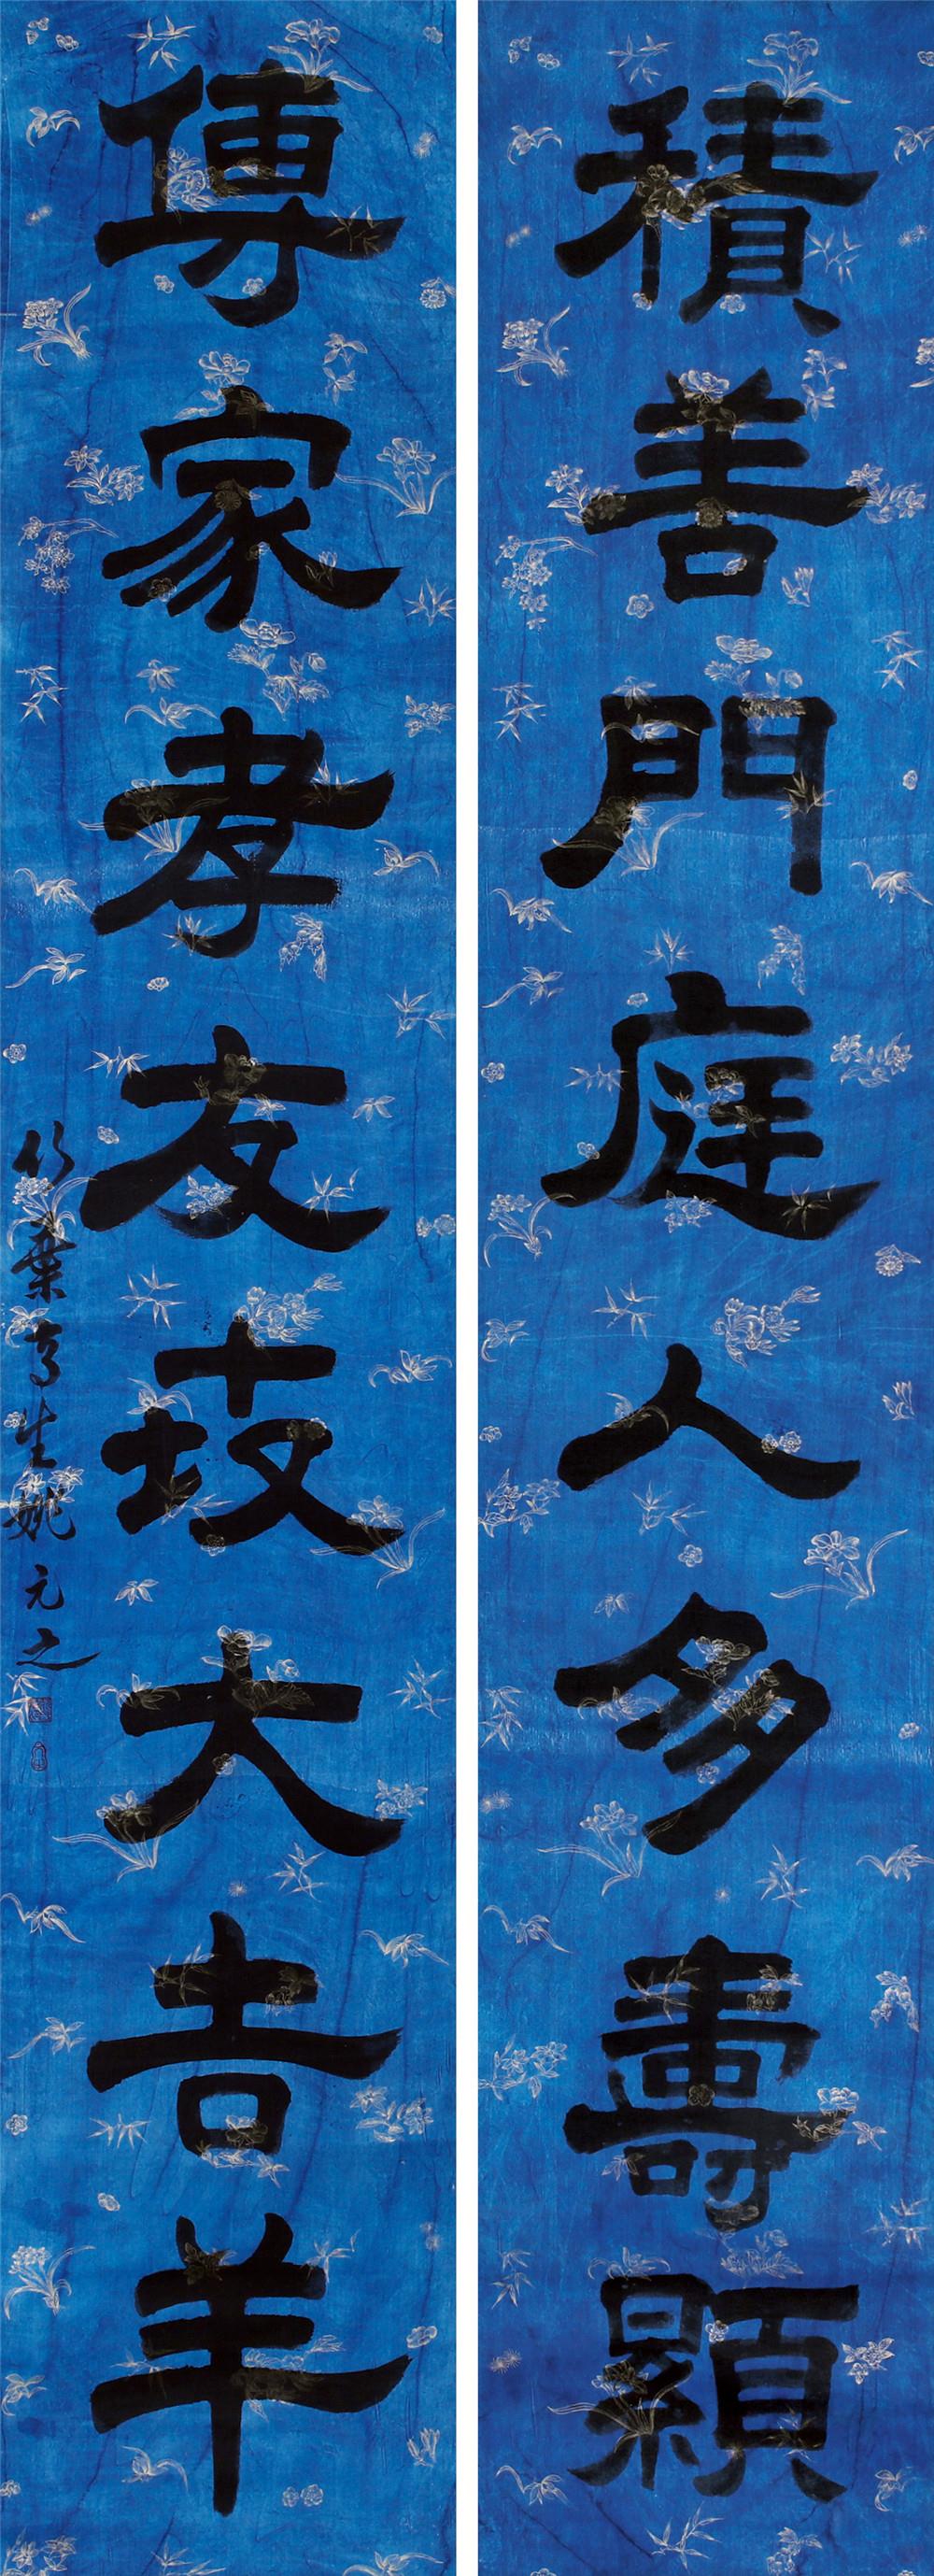 積善門庭人多壽顯
傳家孝友大吉羊
竹葉亭生姚元之